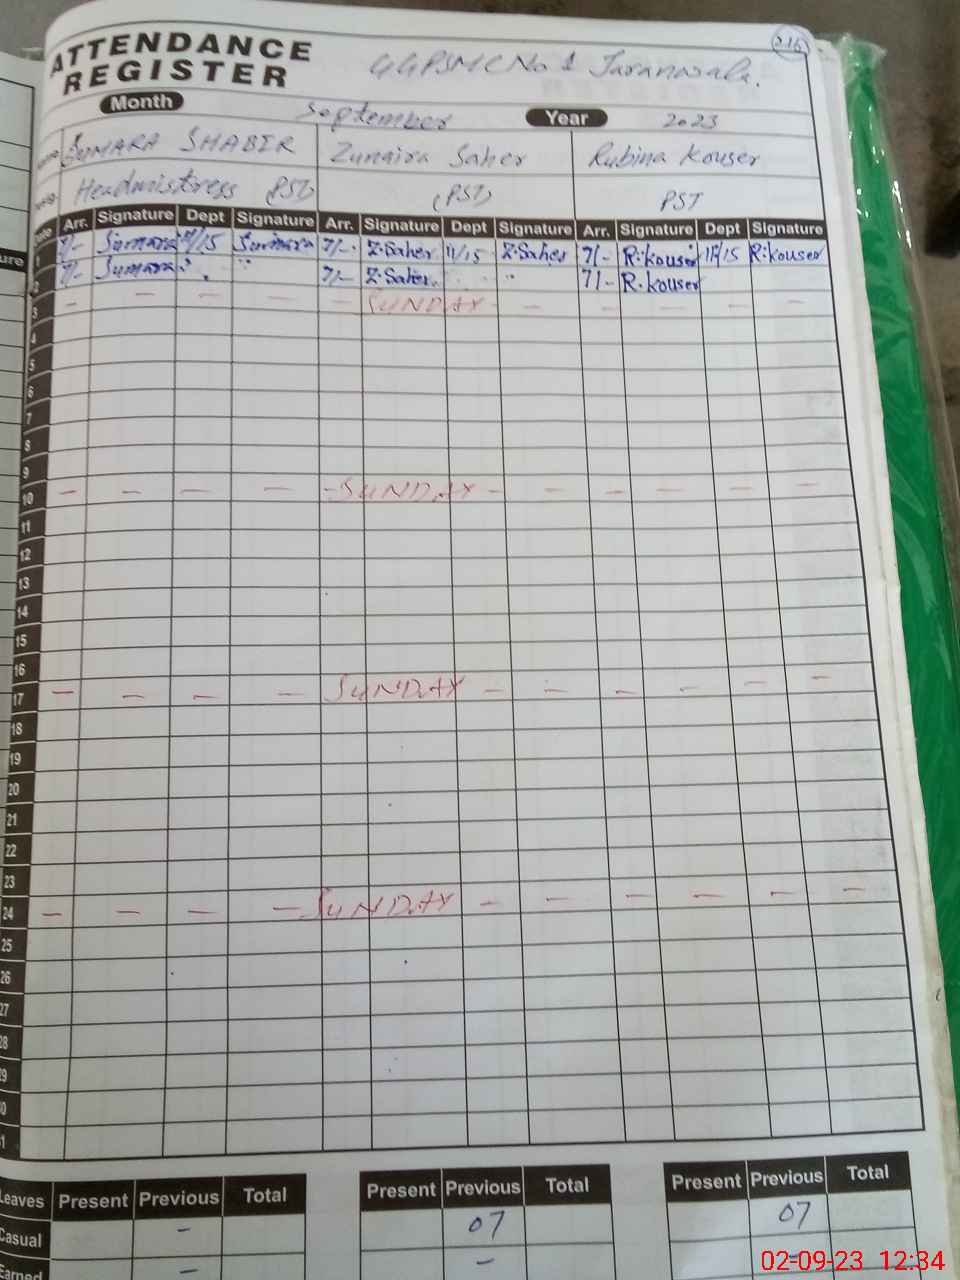 216
ATTENDANCE
REGISTER
GGPSMC No 1 Jaranwala.
Month September Year 2023
SUMARA SHABIR Zunaira Saher Rubina Kouser
Headmistress (PST) (PST) PST
Date Arr. Signature Dept Signature Arr. Signature Dept Signature Arr. Signature Dept Signature
1 7/- Sumara 11/15 Sumara 7/- Z.Saher 11/15 Z.Saher 7/- R.kouser 11/15 R.kouser
2 7/- Sumara 7/- Z.Saher. 7/- R.kouser
3 — — — — — SUNDAY — — — — — —
4
5
6
7
8
9
10 — — — — - SUNDAY - — — — — —
11
12
13
14
15
16
17 — — — — SUNDAY — — — — — —
18
19
20
21
22
23
24 — — — — SUNDAY — — — — — —
25
26
27
28
29
30
31
Leaves Present Previous Total Present Previous Total Present Previous Total
Casual - 07 07
Earned - - -
02-09-23 12:34